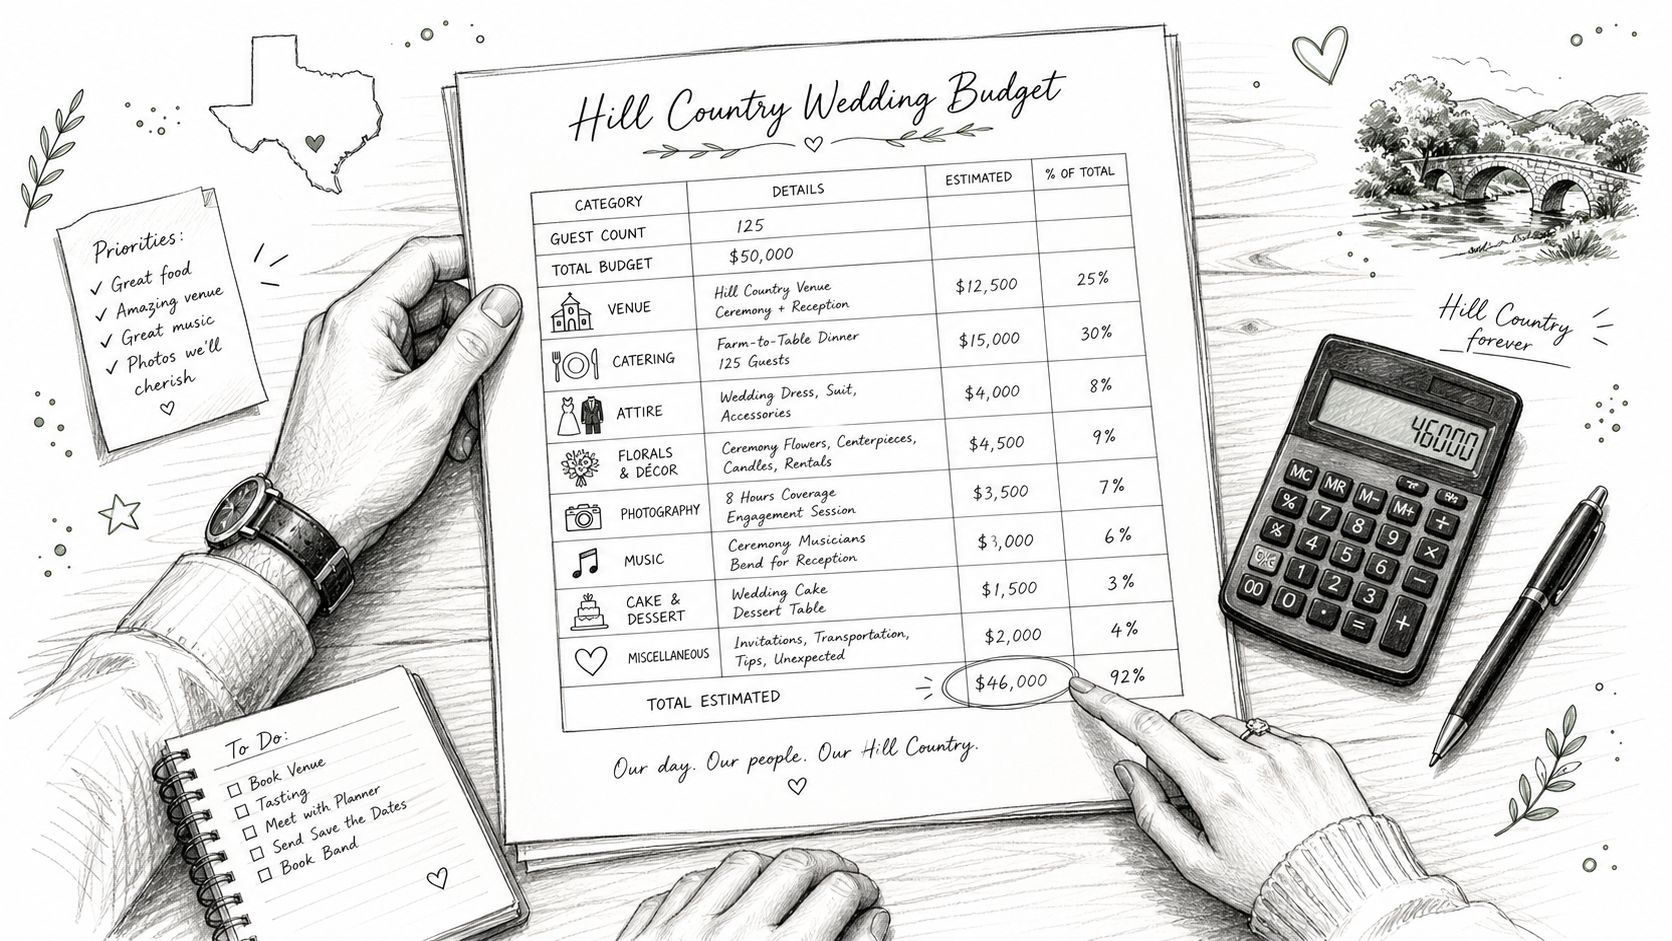 Hill Country Wedding Budget
CATEGORY DETAILS ESTIMATED % OF TOTAL
GUEST COUNT 125
TOTAL BUDGET $50,000
VENUE
Hill Country Venue
Ceremony + Reception
$12,500 25%
CATERING
Farm-to-Table Dinner
125 Guests
$15,000 30%
ATTIRE
Wedding Dress, Suit,
Accessories
$4,000 8%
FLORALS
& DÉCOR
Ceremony Flowers, Centerpieces,
Candles, Rentals
$4,500 9%
PHOTOGRAPHY
8 Hours Coverage
Engagement Session
$3,500 7%
MUSIC
Ceremony Musicians
Bend for Reception
$3,000 6%
CAKE &
DESSERT
Wedding Cake
Dessert Table
$1,500 3%
MISCELLANEOUS
Invitations, Transportation,
Tips, Unexpected
$2,000 4%
TOTAL ESTIMATED $46,000 92%
Our day. Our people. Our Hill Country.
Priorities:
✓ Great food
✓ Amazing venue
✓ Great music
✓ Photos we'll
cherish
To Do:
Book Venue
Tasting
Meet with Planner
Send Save the Dates
Book Band
Hill Country
forever
46000
MC MR M- 
% 7 8 M+ ÷
4 5 9 ×
1 2 6 −
00 0 · 3
= +